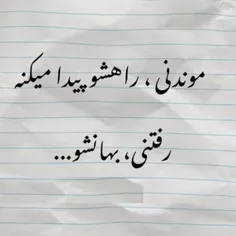 موندنی ، راهشو پیدا میکنه
رفتنی، بهانشو...